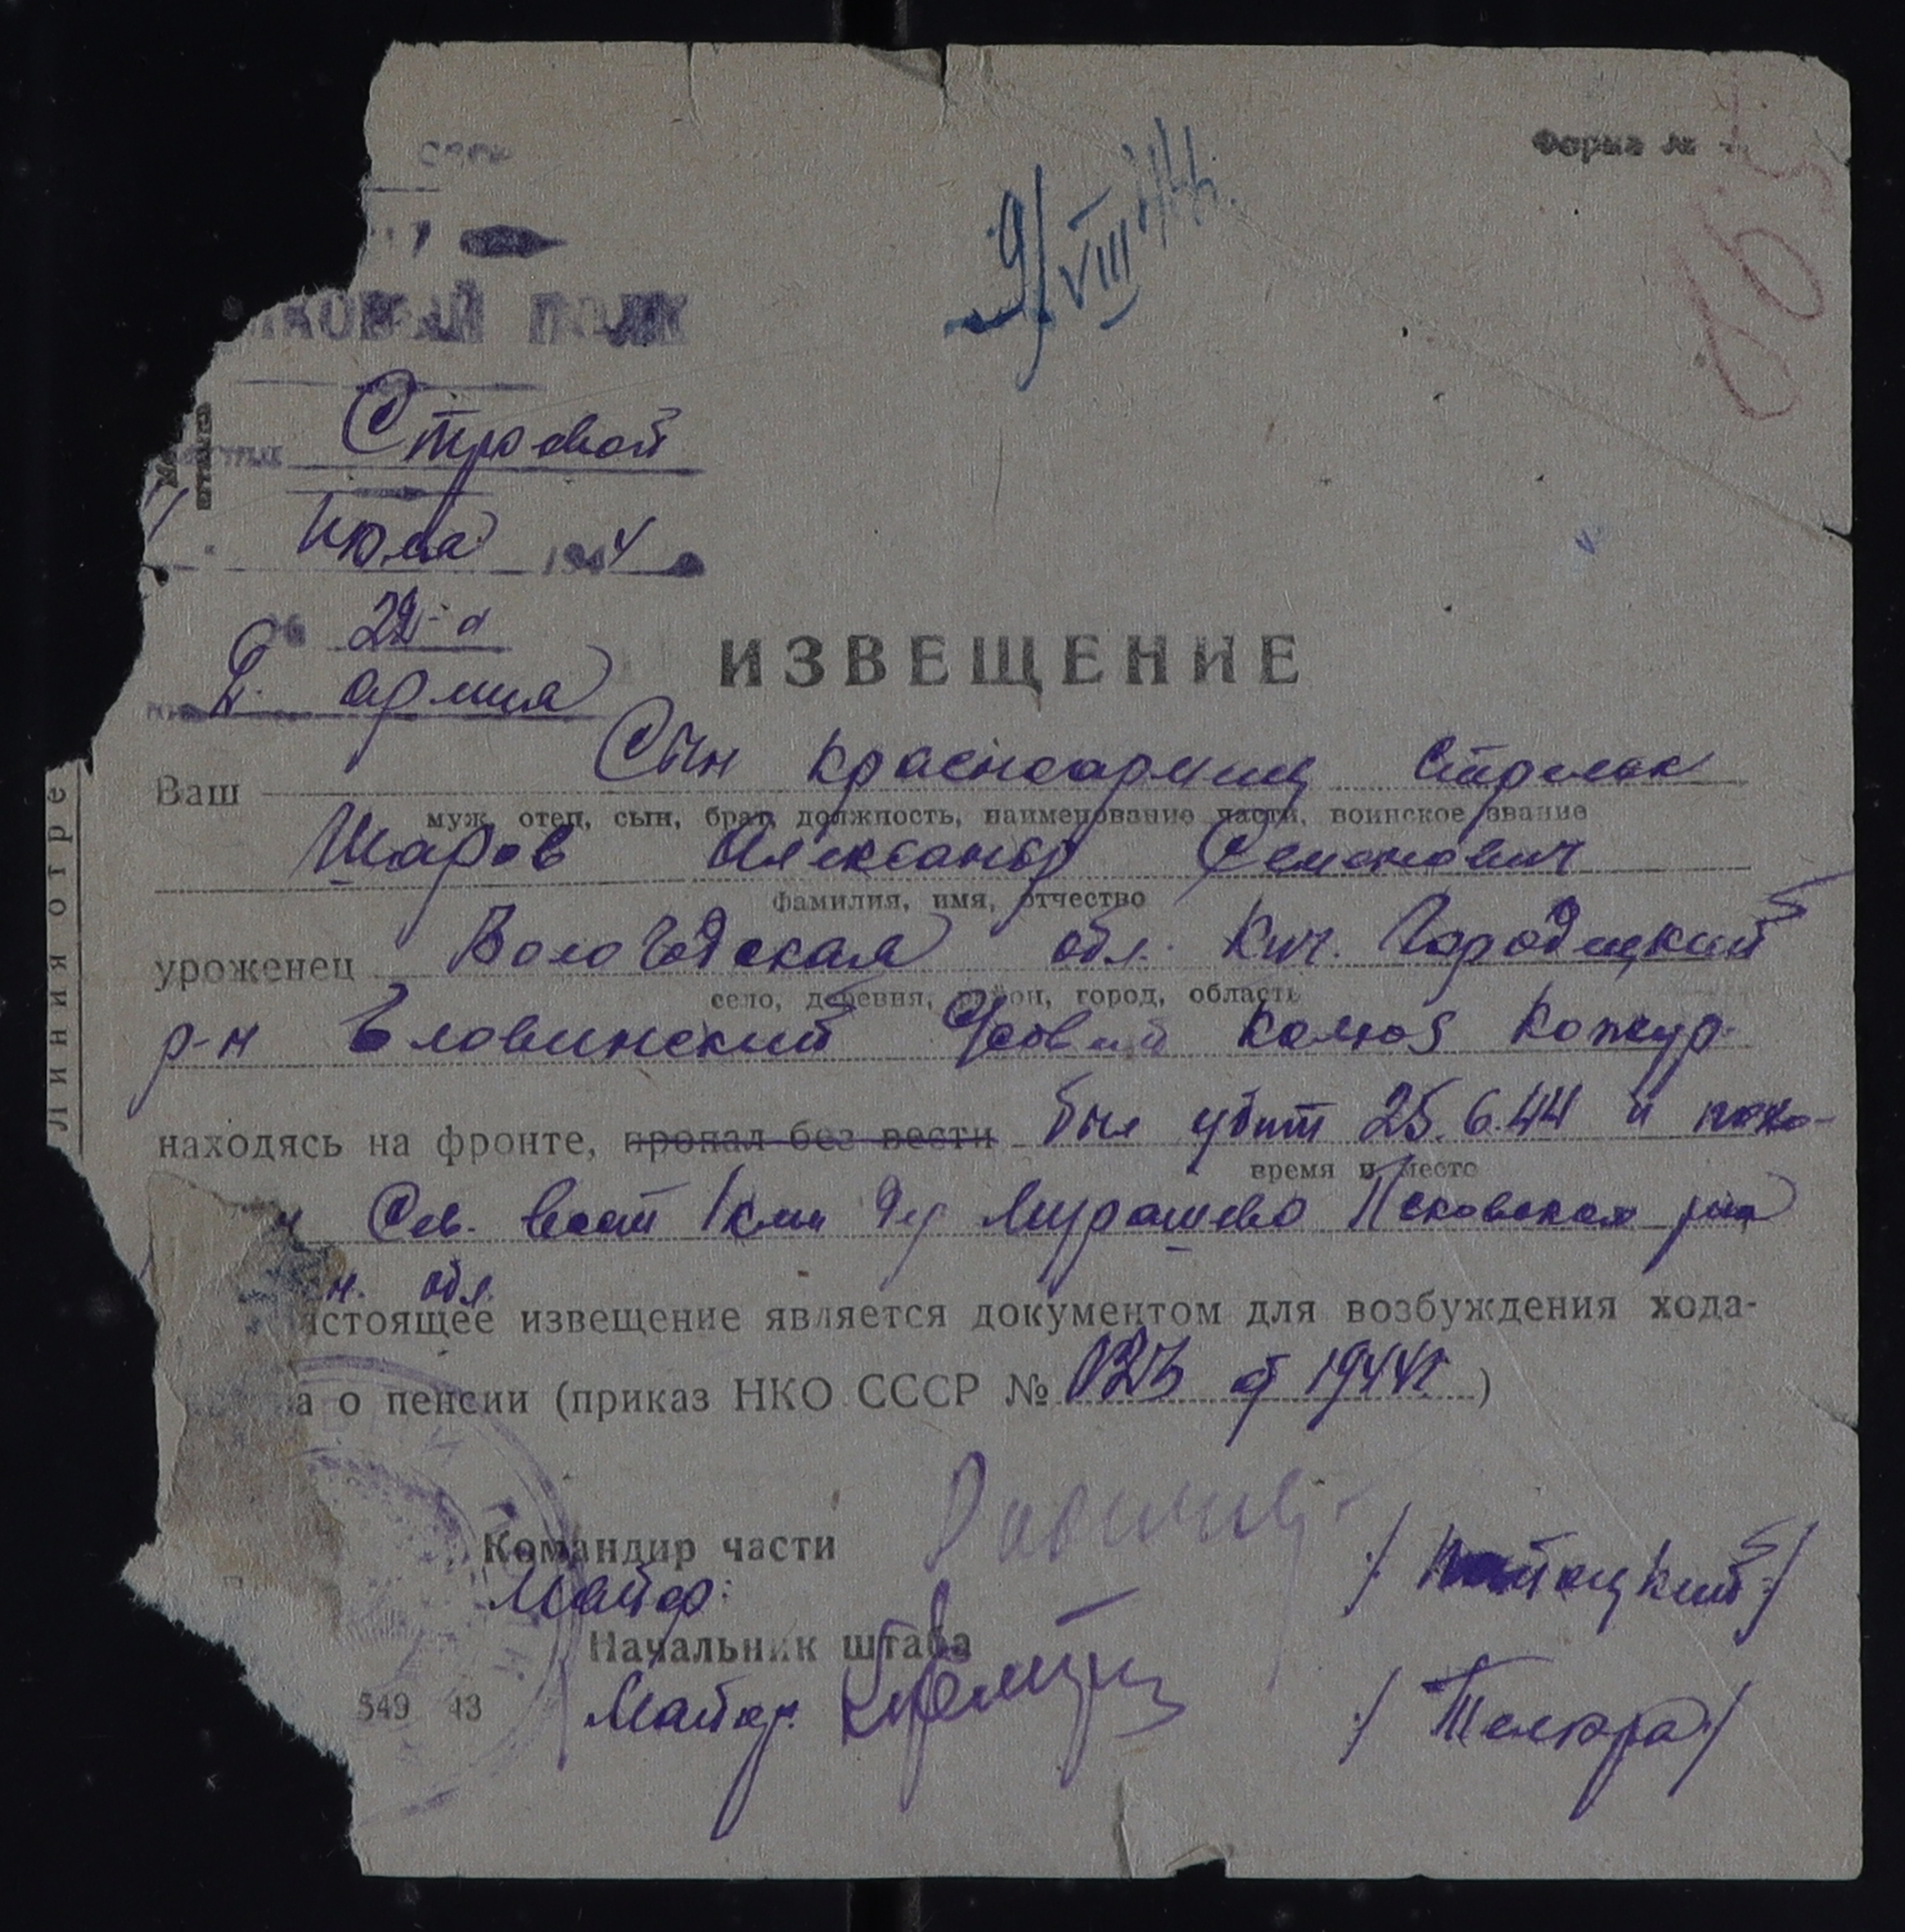 СССР
Форма №
9/VIII 44.
ЛКОВЫЙ ПОЛК
Строевой
Июля 1944 г
22-а
П. армия
ИЗВЕЩЕНИЕ
Ваш Сын красноармеец стрелок
муж, отец, сын, брат, должность, наименование части, воинское звание
Шаров Александр Семенович
фамилия, имя, отчество
уроженец Вологодская обл. Кич. Городецкий
село, деревня, район, город, область
р-н Еловинский
находясь на фронте, пропал без вести был убит 25.6.44 и похо-
время и место
н Сев. вост 1 км дер Мурашево Псковская р-на
н. обл.
астоящее извещение является документом для возбуждения хода-
а о пенсии (приказ НКО СССР № 023 от 1944г.)
Командир части
Майор:
Начальник штаба
549 43
Майор.
Линия отре